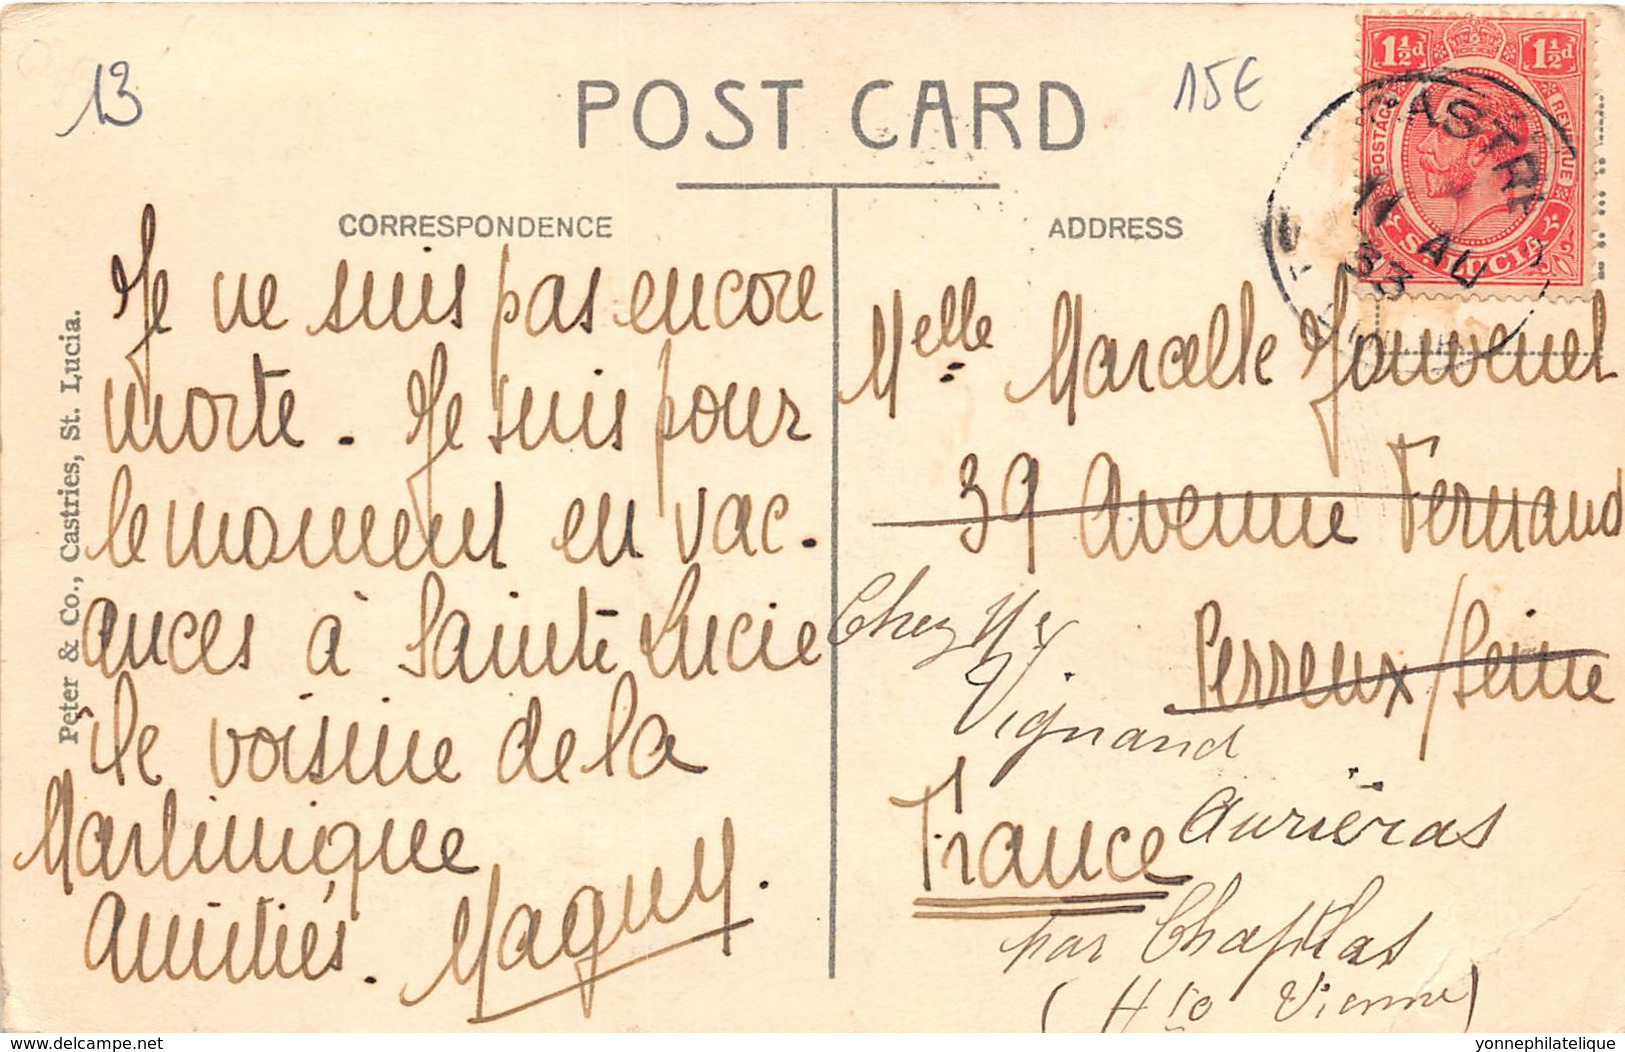 13
POST CARD
15€
1½d 1½d
POSTAGE REVENUE
ST. LUCIA
CASTRI
11 AU
33
CORRESPONDENCE
ADDRESS
Peter & Co., Castries, St. Lucia.
Je ne suis pas encore
morte. Je suis pour
le moment en vac-
ances à Sainte Lucie
île voisine de la
Martinique
Amitiés. Maguy.
Melle Marcelle Jouvenel
39 Avenue Fernand
Perreux/Seine
France
Chez Mr
Vignand
Aurièras
par Chaptelat
(Hte Vienne)
delcampe.net
yonnephilatelique